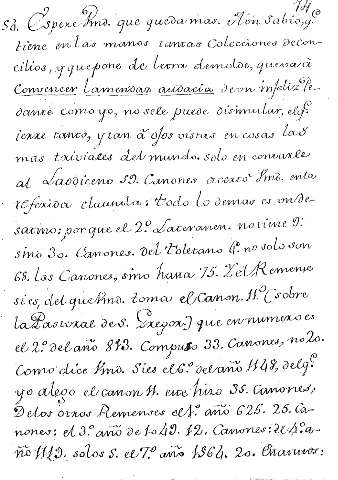 Sd. Espere Vmd. que queda mas. A un Sabio, q.e
tiene en las manos tantas Colecciones de con-
cilios, y que pone de letra de molde, que va à
Convencer la mendaz audacia de un infeliz Pe-
dante como yo, no se le puede disimular, el q.e
ierre tanto, y tan à ojos vistas en cosas las
mas triviales del mundo. solo en contarle
al Laodiceno 59. Canones acertò Vmd. en la
referida clausula: todo lo demas es un de-
satino: porque el 2.º Lateranen. no tiene 9.
sino 30. Canones. Del Toletano 4.º no solo son
68. las Canones, sino hasta 75. Y el Remense
si es, del que Vmd. toma el Canon 11.º (sobre
la Pastoral de S. Gregor.) que en numero es
el 2.º del año 813. Compuso 33. Canones, no 20.
Como dice Vmd. Si es el 6.º del año 1148, del q.e
yo alego el canon 11. este hizo 35. Canones,
De los otros Remenses el 1.º año 625. 25. Ca-
nones: el 3.º año de 1049. 12. Canones: de 4.º a-
ño 1119. solos 5. el 7.º año 1564. 20. Estatutos: